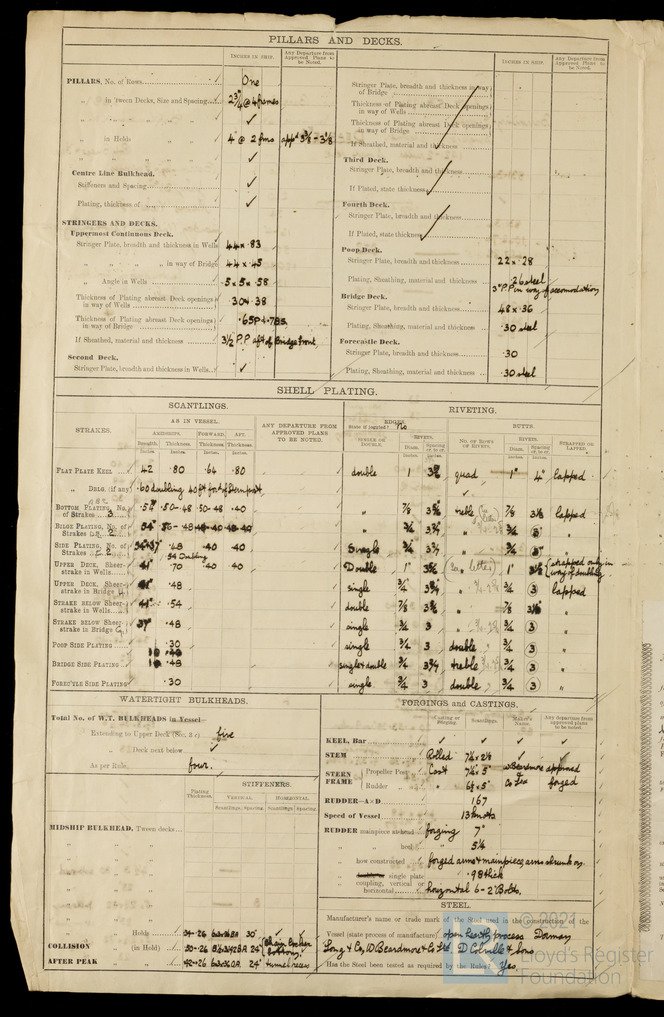 PILLARS AND DECKS.
INCHES IN SHIP.
Any Departure from Approved Plans to be Noted.
PILLARS, No. of Rows One
" in Tween Decks, Size and Spacing 2¾" @ 4 frames
" " " "
" in Holds " " 4" @ 2 fms appd 3⅜ - 3⅛
" " " "
Centre Line Bulkhead.
Stiffeners and Spacing
Plating, thickness of
STRINGERS AND DECKS.
Uppermost Continuous Deck.
Stringer Plate, breadth and thickness in Wells 44 x .83
" " " in way of Bridge 44 x .45
" Angle in Wells 5 x 5 x .58
Thickness of Plating abreast Deck openings in way of Wells
Thickness of Plating abreast Deck openings in way of Bridge
If Sheathed, material and thickness 3½ P.P. aft of Bridge front
Second Deck.
Stringer Plate, breadth and thickness in Wells
INCHES IN SHIP
Any Departure from Approved Plans to be Noted.
Stringer Plate, breadth and thickness in way of Bridge
Thickness of Plating abreast Deck openings in way of Wells
Thickness of Plating abreast Deck openings in way of Bridge
If Sheathed, material and thickness
Third Deck.
Stringer Plate, breadth and thickness
If Plated, state thickness
Fourth Deck.
Stringer Plate, breadth and thickness
If Plated, state thickness
Poop Deck.
Stringer Plate, breadth and thickness 22 x .28
Plating, Sheathing, material and thickness .26 steel
3" P.P. in way of accomodation
Bridge Deck.
Stringer Plate, breadth and thickness 48 x .36
Plating, Sheathing, material and thickness .30 steel
Forecastle Deck.
Stringer Plate, breadth and thickness .30
Plating, Sheathing, material and thickness .30 steel
SHELL PLATING.
SCANTLINGS.
RIVETING.
STRAKES.
AS IN VESSEL.
AMIDSHIPS. FORWARD. AFT.
Breadth. Thickness. Thickness. Thickness.
Inches. Inches. Inches. Inches.
ANY DEPARTURE FROM APPROVED PLANS TO BE NOTED.
EDGES.
State if joggled? No
SINGLE OR DOUBLE.
RIVETS.
Diam. Spacing cr. to cr.
Inches. Inches.
BUTTS.
NO. OF ROWS OF RIVETS.
RIVETS.
Diam. Spacing cr. to cr.
Inches. Inches.
STRAPPED OR LAPPED.
FLAT PLATE KEEL 42 .80 .64 .80 double 1 quad 1" 4" lapped
" DBLG. (if any) .60 doubling 40 ft ford of Sternpost
BOTTOM PLATING, No. of Strakes 3 54" .50-.48 .50-.48 .40 " ⅞ treble ⅞ lapped
BILGE PLATING, No. of Strakes 2 54" " ¾ ¾ 3" "
SIDE PLATING, No. of Strakes 2 .48 .40 .40 Single ¾ ¾ 3" "
.54 Doubling
UPPER DECK, Sheer-strake in Wells 41" .70 .40 .40 Double 1" 1" strapped only in way of doubling
UPPER DECK, Sheer-strake in Bridge 41" .48 single ¾ " ¾ 3 lapped
STRAKE BELOW Sheer-strake in Wells 41" .54 double ⅞ " ⅞ "
STRAKE BELOW Sheer-strake in Bridge 37" .48 single ¾ " ¾ 3 "
POOP SIDE PLATING .30 single ¾ 3 double ¾ 3 "
BRIDGE SIDE PLATING .48 single & double ¾ treble ¾ 3 "
FOREC'TLE SIDE PLATING .30 single ¾ 3 double ¾ 3 "
WATERTIGHT BULKHEADS.
Total No. of W.T. BULKHEADS in Vessel
Extending to Upper Deck (Sec. 3 c) five
" Deck next below
As per Rule, four.
Plating Thickness.
STIFFENERS.
VERTICAL. HORIZONTAL.
Scantlings. Spacing. Scantlings. Spacing.
MIDSHIP BULKHEAD, Tween decks
" "
" "
" "
" "
" Holds .34-.26 30"
COLLISION " (in Hold) .50-.26 24" Chain Locker bottom
AFTER PEAK " " 24" tunnel recess
FORGINGS AND CASTINGS.
Casting or Forging. Scantlings. Maker's Name. Any departure from approved plans to be noted.
KEEL, Bar
STEM Rolled 7¼ x 2½
STERN FRAME
Propeller Post Cast 7¼ x 5" W Beardmore approved
Rudder " " 6½ x 5" Co Ltd forged
RUDDER—A x D 167
Speed of Vessel 13 knots
RUDDER mainpiece at head forging 7"
" " heel " 5¼
" how constructed forged arms & mainpiece, arms shrunk on
" single plate .98 thick
" coupling, vertical or horizontal horizontal 6 - 2" Bolts.
STEEL.
Manufacturer's name or trade mark of the Steel used in the construction of the
Vessel (state process of manufacture) open hearth process Dorman
Long & Co, W Beardmore & Co Ltd. D Colville & Sons
Has the Steel been tested as required by the Rules? Yes.
© 2021
Lloyd's Register
Foundation